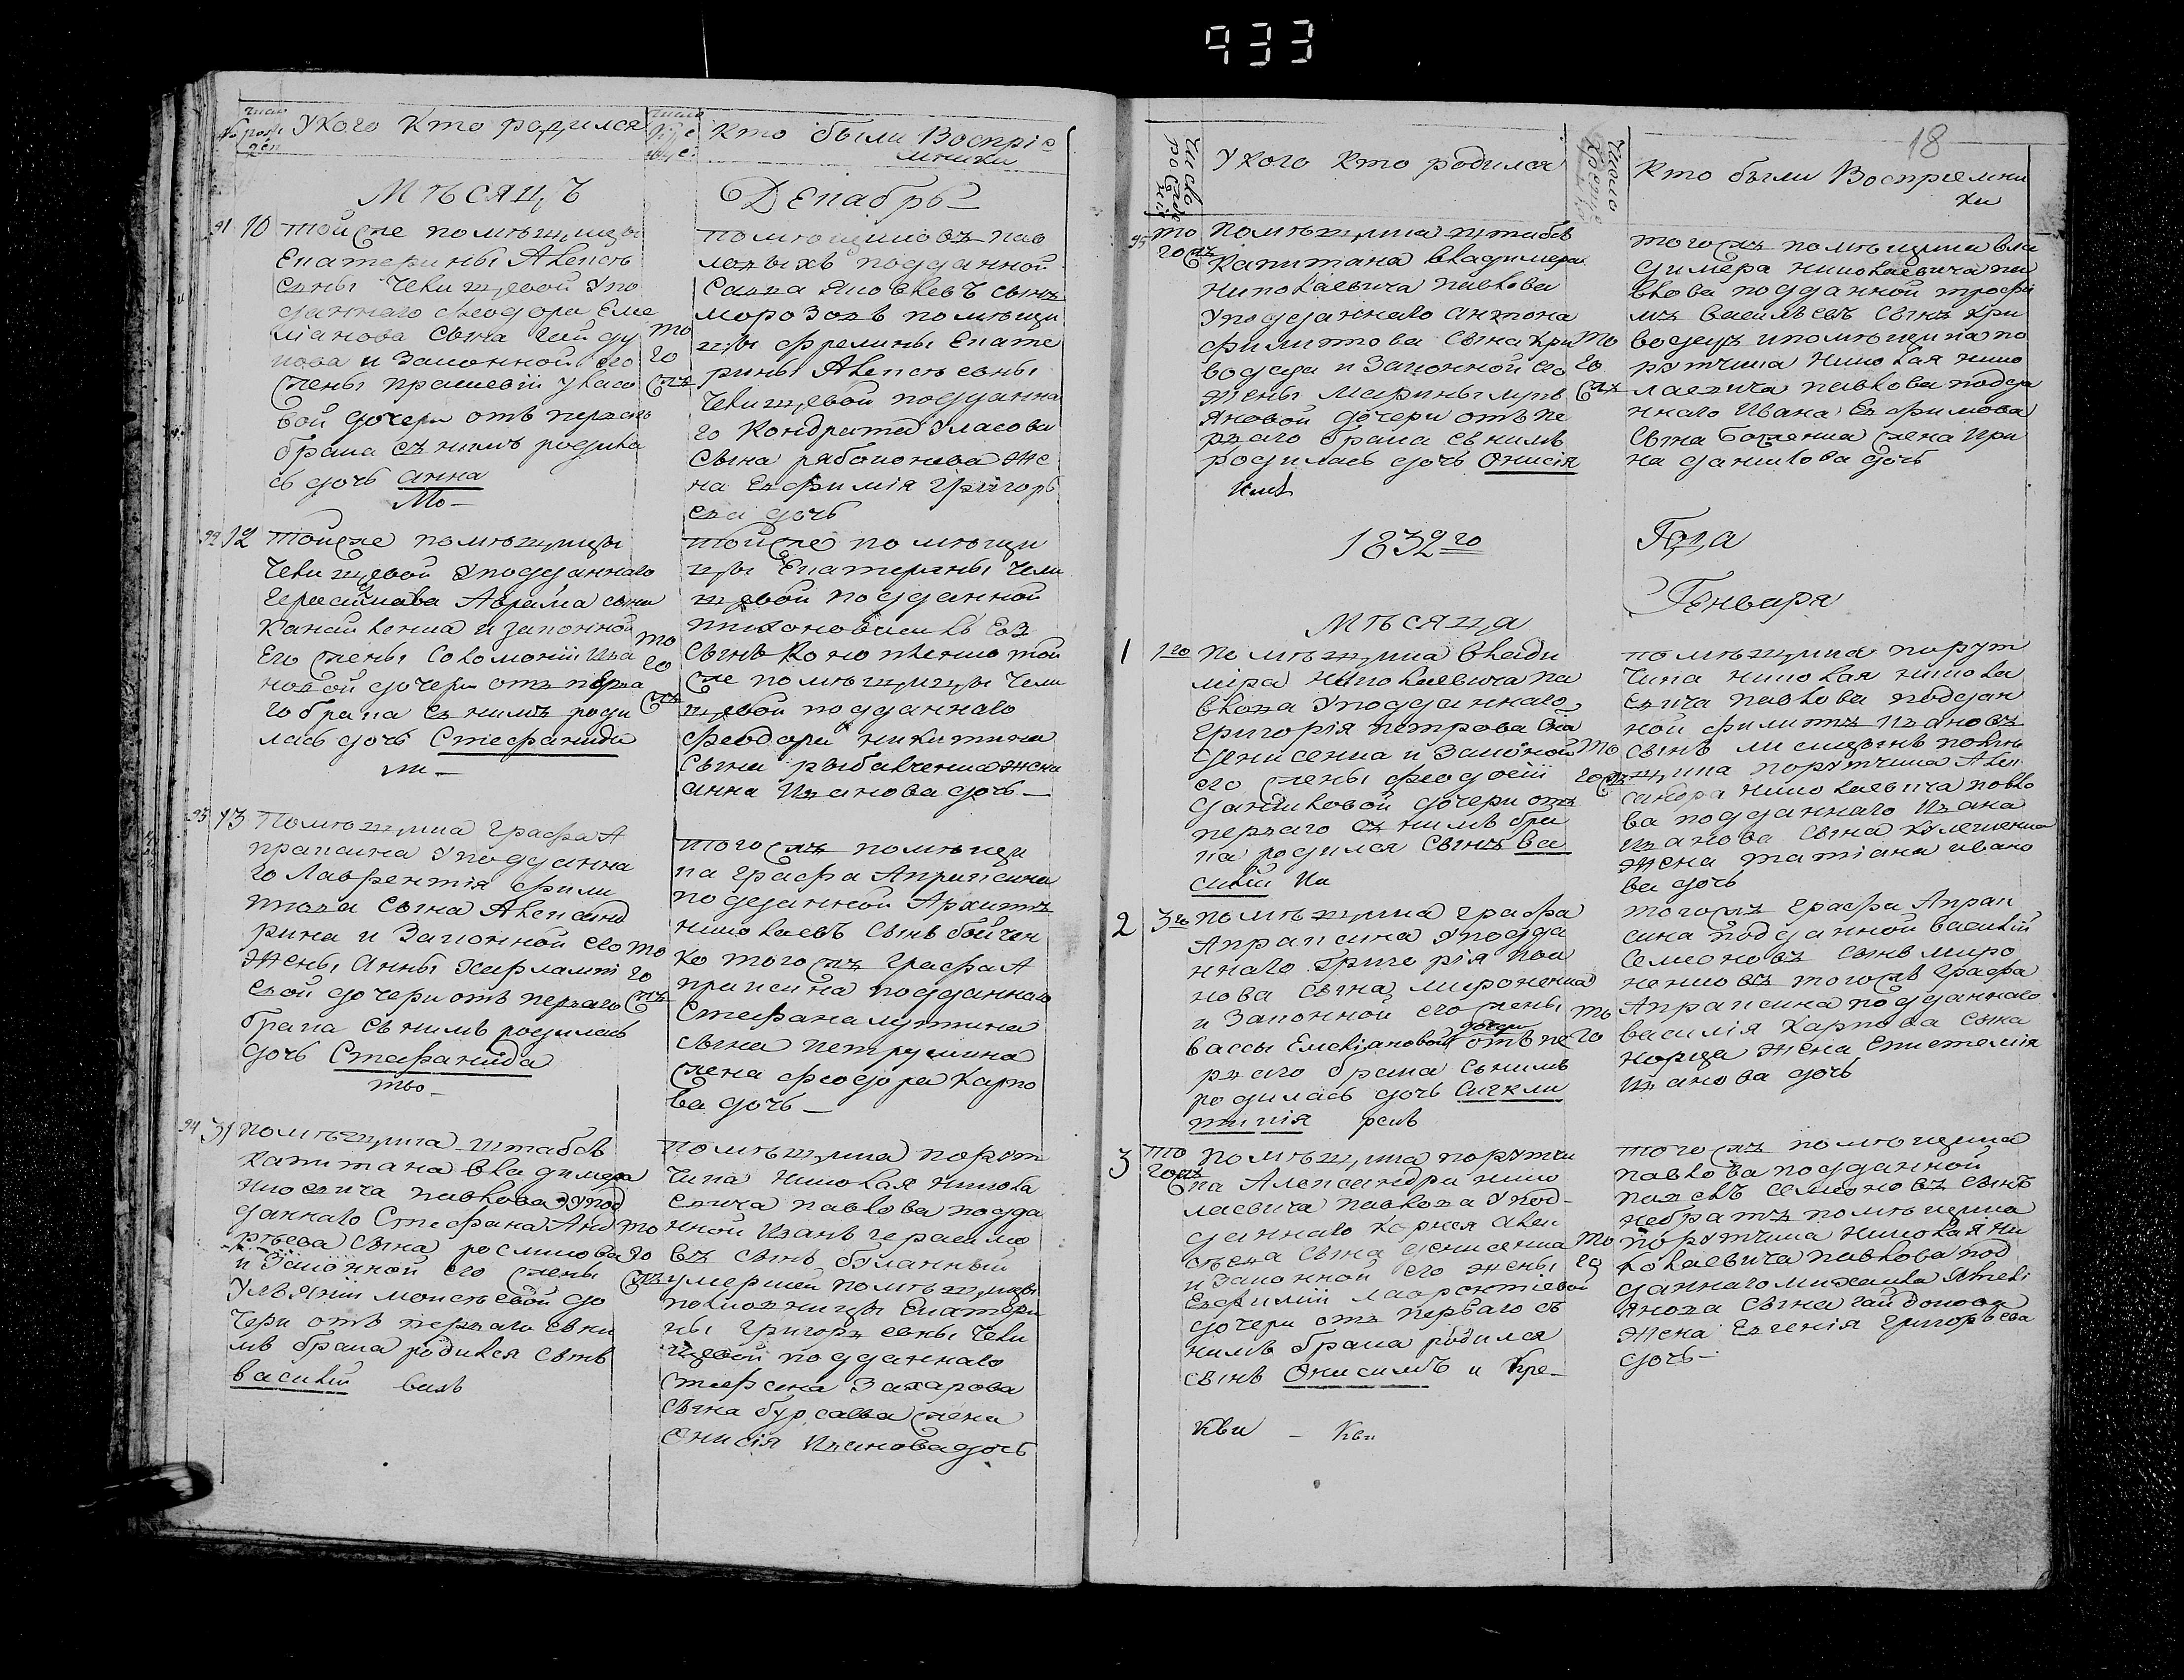 933
18
число рожден
У кого кто родился
число креще
Кто были Воспріе
мники
Мѣсяцъ
Декабрь
91 10 тойже помѣщицы
Екатерины Алексѣ
евны Челищевой упо
даннаго Феодора Еме
ліанова сына Гайду
кова и Законной его
жены Праскевіи Уласо
вой дочери отъ перваго
брака съ нимъ родила
сь дочь Анна
того жъ
помѣщиковъ Пав
ловыхъ подданной
Савва Яковлевъ сынъ
Морозовъ помѣщи
цы Фрелины Екате
рины Алексѣевны
Челищевой подданна
го Кондратія Уласова
сына Рябоконева же
на Евфимія Григорь
ева дочь
92 12 тойже помѣщицы
Челищевой уподданнаго
Герасимова Аврама сына
и законной
его жены Соломоніи Ива
новой дочери отъ перва
го брака съ нимъ роди
лась дочь Стефанида
того жъ
тойже помѣщи
цы Екатерины Чели
щевой подданной
сынъ Кононенко той
же помѣщицы Чели
щевой подданнаго
Феодора Никитина
сына Рыбалченка жена
Анна Иванова дочь
93 13 Помѣщика Графа А
праксина уподданна
го Лаврентія Фили
пова сына Александ
рина и Законной его
жены Анны Харлампі
евой дочери отъ перваго
брака съ нимъ родилась
дочь Стефанида
того жъ
того жъ помѣщи
ка Графа Апраксина
подданной Архипъ
Николаевъ сынъ Бойчен
ко того жъ Графа А
праксина подданнаго
Стефана Лукина
сына Петрушина
жена Феодора Карпо
ва дочь
94 31 помѣщика штабсъ
Капитана Владимера
Никоевича Павлова упод
даннаго Стефана Анд
реева сына
и Законной его жены
Ульяніи Моисѣевой до
чери отъ перваго съ ни
мъ брака родился сынъ
Василій
того жъ
помѣщика порут
чика Николая Никола
евича Павлова подда
нной Иванъ Герасимо
въ сынъ Буланный
умершей помѣщицы
полковницы Екатери
ны Григорьевны Чели
щевой подданнаго
Стефана Захарова
сына Бурсаева жена
Онисія Иванова дочь
Число рожденія
У кого кто родился
Число крещенія
Кто были Воспріемни
ки
95 того жъ помѣщика штабсъ
Капитана Владимера
Николаевича Павлова
Уподданнаго Антона
Филипова сына Кри
водеда и Законной его
жены Марины Лукь
яновой дочери отъ пе
рваго брака съ нимъ
родилась дочь Онисія
того жъ
того жъ помѣщика Вла
димера Николаевича Па
влова подданной Трофи
мъ Васильевъ сынъ Кри
водедъ и помѣщика по
рутчика Николая Нико
лаевича Павлова подда
ннаго Ивана Евфимова
сына Боженка жена Ири
на Данилова дочь
1832го Года
Мѣсяца Генваря
1 1го помѣщика Влади
міра Николаевича Па
влова Уподданнаго
Григорія Петрова сна
Денисенка и Законной
его жены Феодосіи
Даниловой дочери отъ
перваго съ нимъ бра
ка родился сынъ Ва
силій
того жъ
помѣщика порут
чика Николая Никола
евича Павлова поддан
ной Филипъ Ивановъ
сынъ Лисицынъ помѣ
щика порутчика Алек
сандра Николаевича Павло
ва подданнаго Ивана
Иванова сына Кулешенка
жена Татіана Ивано
ва дочь
2 3го помѣщика Графа
Апраксина уподда
ннаго Григорія Яки
мова сына Мироненка
и Законной его жены
Вассы Емеліановой дочери отъ пе
рваго брака съ нимъ
родилась дочь Синкли
тикія
того
того жъ Графа Апрак
сина подданной Василій
Семеоновъ сынъ Миро
ненковъ того жъ Графа
Апраксина подданнаго
Василія Карпова сына
жена Епистемія
Иванова дочь
3 того жъ помѣщика порутчи
ка Александра Нико
лаевича Павлова Упод
даннаго Корнея Алек
сѣева сына Денисенка
и Законной его жены
Евфиміи Лаврентіевой
дочери отъ перваго съ
нимъ брака родился
сынъ Онисимъ и кре-
того
того жъ помѣщика
Павлова подданной
Семеоновъ сынъ
помѣщика
порутчика Николая Ни
колаевича Павлова под
даннаго Михаила Емелі
янова сына Гайдукова
жена Евгенія Григорьева
дочь